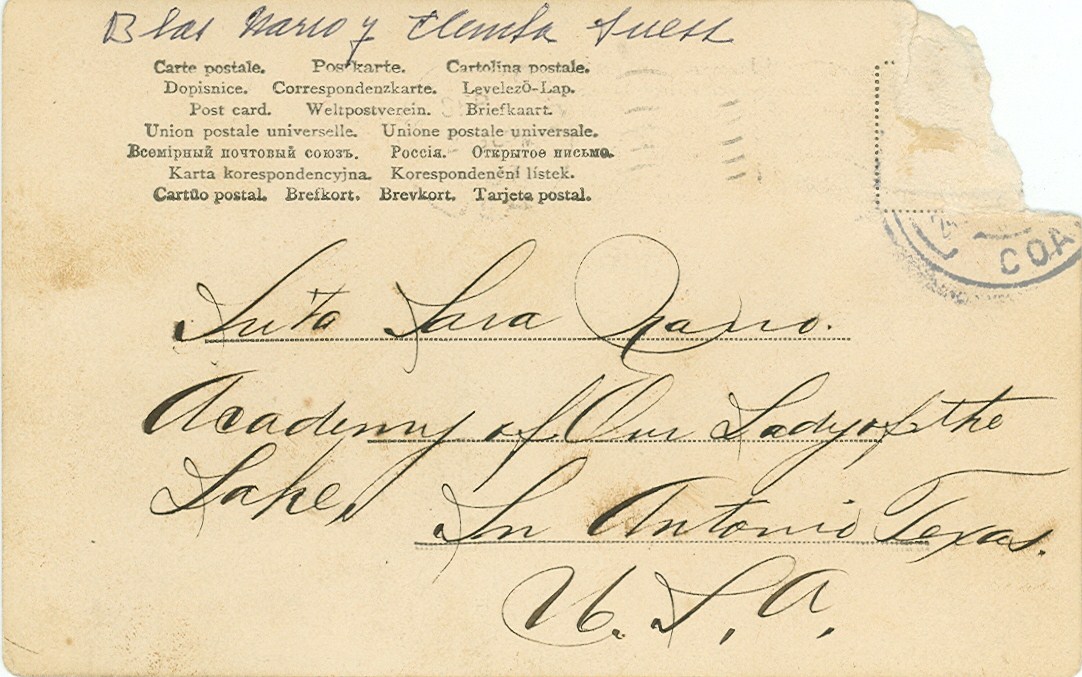 Blas Narro y
Carte postale. Postkarte. Cartolina postale.
Dopisnice. Correspondenzkarte. Levelező-Lap.
Post card. Weltpostverein. Briefkaart.
Union postale universelle. Unione postale universale.
Всемірный почтовый союзъ. Россія. Открытое письмо.
Karta korespondencyjna. Korespondenční listek.
Cartão postal. Brefkort. Brevkort. Tarjeta postal.
COA
Srita Sara Narro.
Academy of Our Lady of the
Lake,
Sn Antonio Texas.
U. S. A.